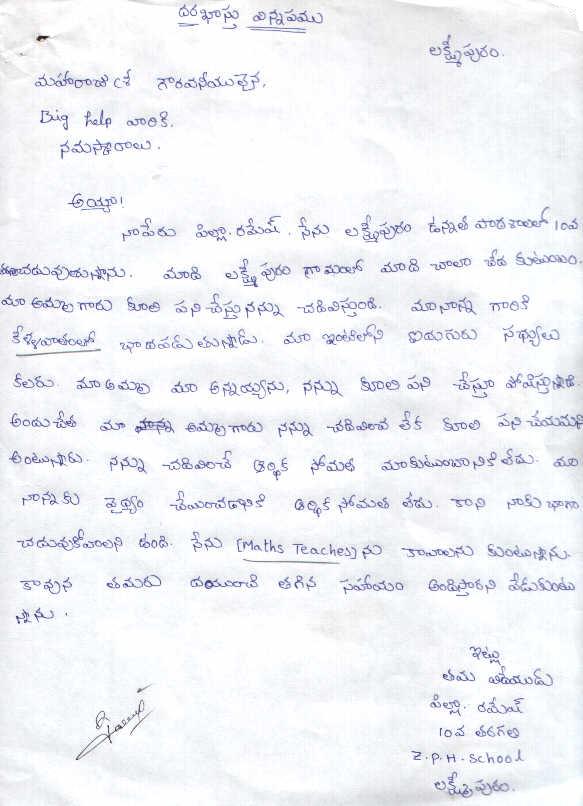 దరఖాస్తు విన్నపము
లక్ష్మీపురం.
మహారాజశ్రీ గౌరవనీయులైన,
Big help వారికి.
నమస్కారాలు.
అయ్యా!
నాపేరు పిల్లా. రమేష్. నేను లక్ష్మీపురం ఉన్నత పాఠశాలలో 10వ
చదువుతున్నాను. మాది లక్ష్మీపురం గ్రామంలో మాది చాలా పేద కుటుంబం.
మా అమ్మ గారు కూలి పనిచేస్తు నన్ను చదివిస్తుంది. మా నాన్న గారికి
కీళ్ళవాతంలో బాధపడుతున్నాడు. మా ఇంటిలోని ఐయుగురు సభ్యులు
కలరు. మా అమ్మ మా అన్నయ్యను, నన్ను కూలి పని చేస్తూ పోషిస్తున్నాది.
అందుచేత మా అమ్మగారు నన్ను చదివించ లేక కూలి పని చేయమని
అంటున్నారు. నన్ను చదివించే ఆర్థిక సోమత మాకుటుంబానికి లేదు. మా
నాన్నకు వైద్యం చేయించడానికి ఆర్థిక సోమత లేదు. కాని నాకు బాగా
చదువుకోవాలని ఉంది. నేను [Maths Teaches] ను కావాలను కుంటున్నాను.
కావున తమరు దయవుంచి తగిన సహాయం అందిస్తారని వేడుకుంటు
న్నాను.
ఇట్లు
తమ విధేయుడు
పిల్లా. రమేష్
10వ తరగతి
Z.P.H. School
లక్ష్మీపురం.